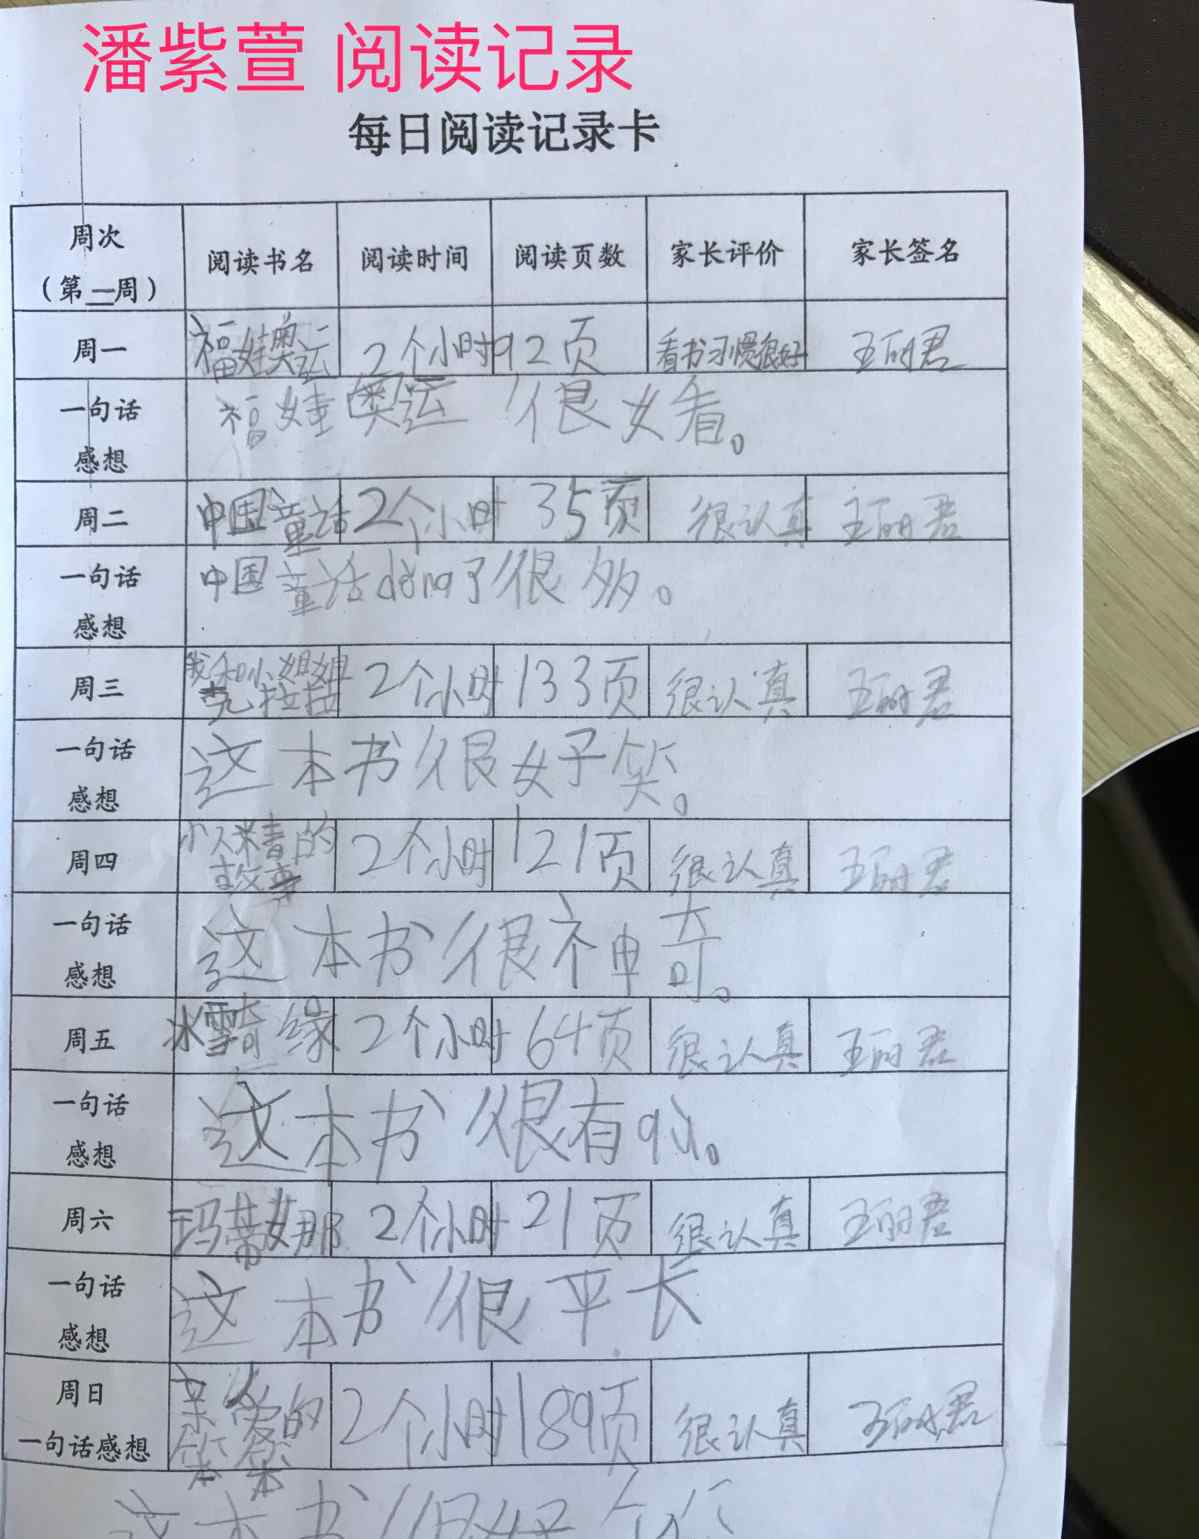 潘紫萱 阅读记录
每日阅读记录卡
周次
（第一周）
阅读书名 阅读时间 阅读页数 家长评价 家长签名
周一 福娃奥运 2个小时 92页 看书习惯很好 王丽君
一句话
感想
福娃奥运很好看。
周二 中国童话 2个小时 35页 很认真 王丽君
一句话
感想
中国童话dǒng了很多。
周三 我和小姐姐
克拉拉 2个小时 133页 很认真 王丽君
一句话
感想
这本书很好笑。
周四 小人精的
故事 2个小时 121页 很认真 王丽君
一句话
感想
这本书很神奇。
周五 冰雪奇缘 2个小时 64页 很认真 王丽君
一句话
感想
这本书很有qù。
周六 玛蒂娜 2个小时 21页 很认真 王丽君
一句话
感想
这本书很平长
周日
一句话感想
亲爱的
笨笨 2个小时 189页 很认真 王丽君
这本书很好